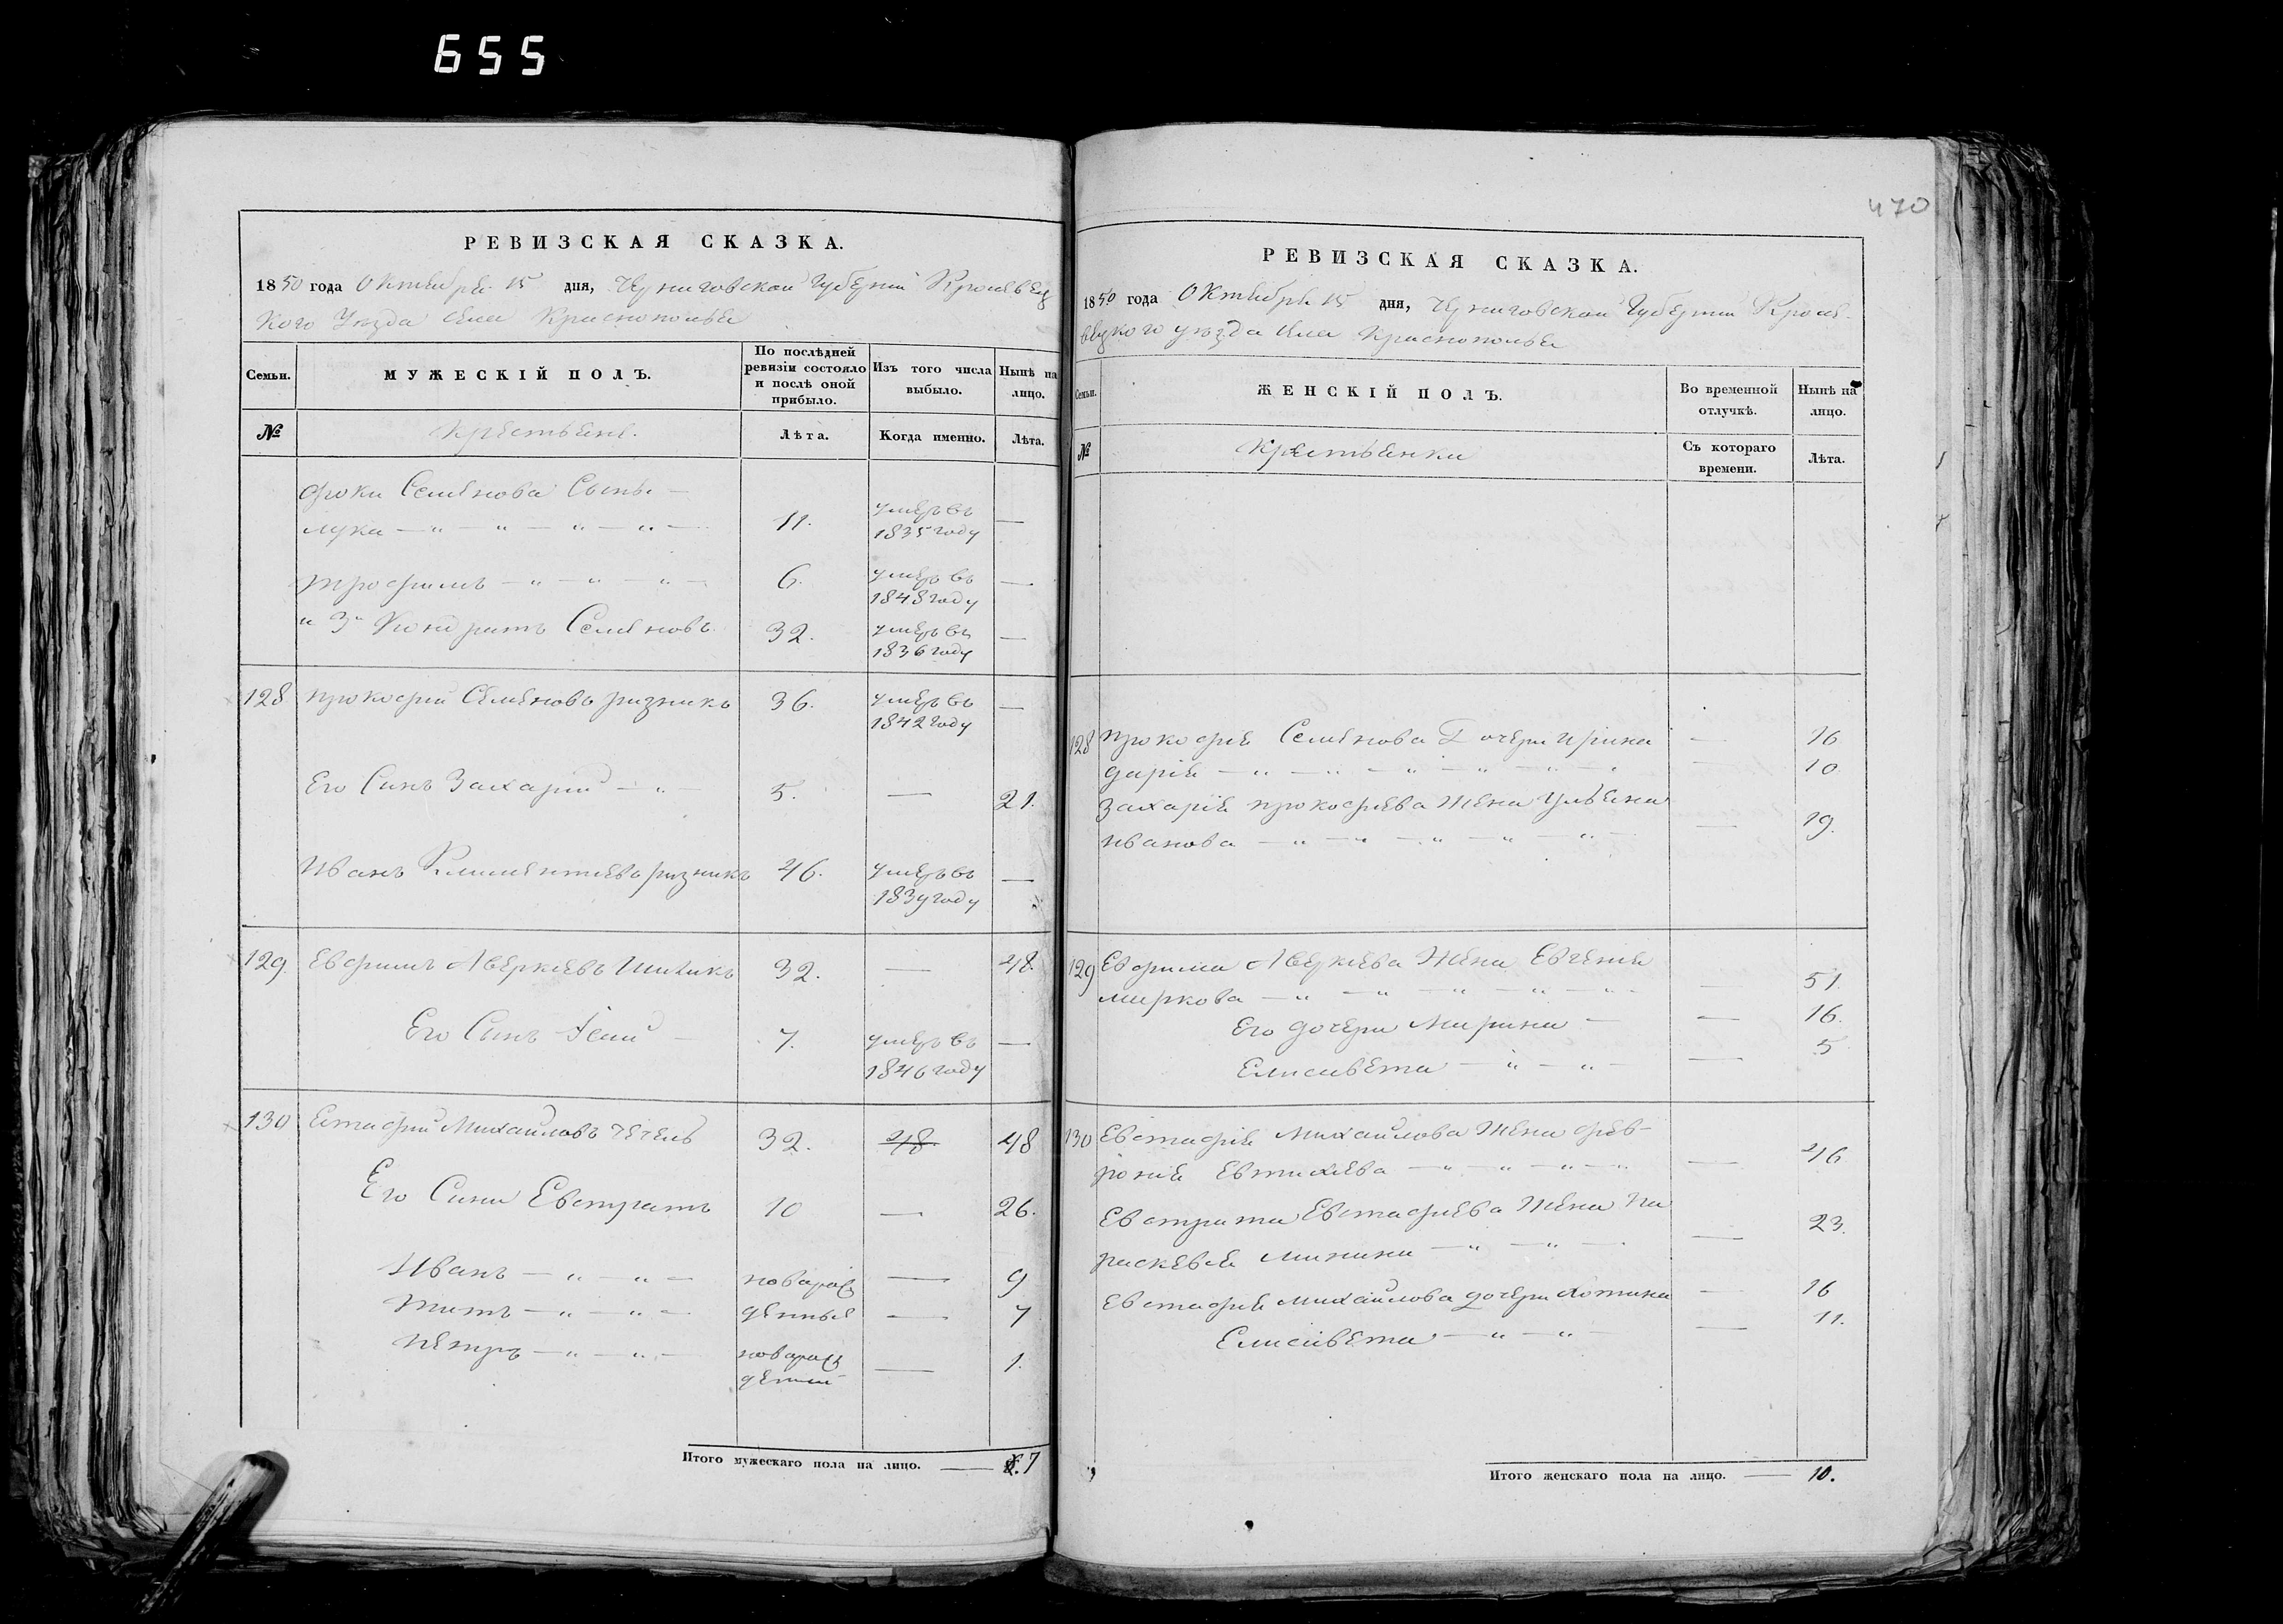 655
470
РЕВИЗСКАЯ СКАЗКА.
1850 года Октября 15 дня, Черниговской Губерніи Кролевец
кого Уезда села Краснополья
Семьи.
МУЖЕСКІЙ ПОЛЪ.
По послѣдней ревизіи состояло и послѣ оной прибыло.
Изъ того числа выбыло.
Нынѣ на лицо.
№
Крестьяне.
Лѣта.
Когда именно.
Лѣта.
Фоки Семенова Сынъ
лука — " — " — " — " — 11. умеръ въ 1835 году —
трофимъ — " — " — " — 6. умеръ въ 1848 году —
" 3й Кондратъ Семеновъ 32. умеръ въ 1836 году —
128 прокофий Семеновъ ризникъ 36. умеръ въ 1842 году —
Его Синъ Захарий — " — 5. — 21.
Иванъ Климентиевъ ризникъ 46. умеръ въ 1839 году —
129. Евфимъ Аверкиевъ 32. — 48.
Его Синъ 7. умеръ въ 1846 году —
130 Естафий Михайловъ 32. 48 48
Его Сини Евстратъ 10 — 26.
Иванъ — " — " — новорож — 9
титъ — " — " — денные — 7
петръ — " — " — новорож
денный — 1.
Итого мужескаго пола на лицо. — 7
РЕВИЗСКАЯ СКАЗКА.
1850 года Октября 15 дня, Черниговской Губернии Кроле-
вецкого уезда села Краснополья
Семьи.
ЖЕНСКІЙ ПОЛЪ.
Во временной отлучкѣ.
Нынѣ на лицо.
№
Крестьянки
Съ котораго времени.
Лѣта.
128 прокофия Семенова Дочери ирина — 16
дария — " — " — " — " — " — 10.
Захарія прокофиева Жена Ульяна
иванова — " — " — " — " — " — 19.
129 Евфима Аверкиева Жена Евгения
маркова — " — " — " — " — " — 51.
Его дочери Марина — — 16.
Елисавета — " — " — 5
130 Евстафия Михайлова Жена фев-
рония Евтихиева — " — " — " — " — 46
Евстрата Евстафиева Жена па
раскевия минина — " — " — 23.
Евстафия михайлова дочери Хотина — 16
Елисавета — " — " — 11.
Итого женскаго пола на лицо. — 10.